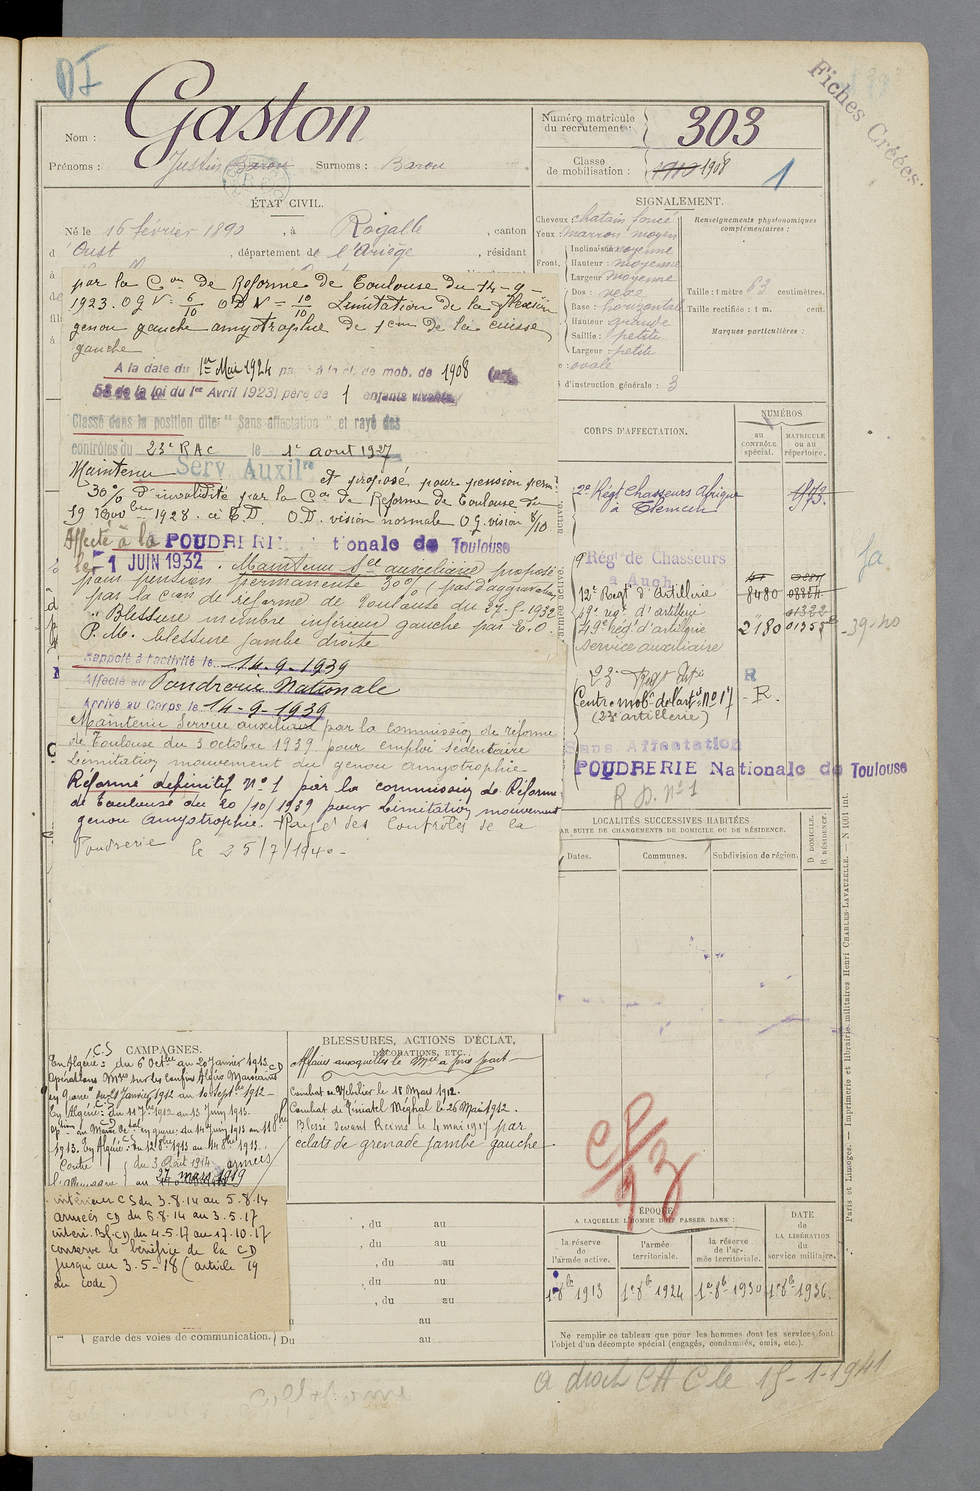 DI
Fiches Créées
Nom : Gaston
Prénoms : Justin Barou Surnoms : Barou
Numéro matricule
du recrutement : 303
Classe
de mobilisation : 1910 1908
1
ÉTAT CIVIL.
Né le 16 février 1890, à Rogalle, canton
d'Oust, département de l'Ariège, résidant
SIGNALEMENT.
Cheveux : chatain foncé
Yeux : marrons moyen
Front. Inclinaison moyenne
Hauteur : moyenne
Largeur moyenne
Dos :
Base : horizontale
Hauteur grande
Saillie : petite
Largeur petite
ovale
Renseignements physionomiques
complémentaires :
Taille : 1 mètre 63 centimètres.
Taille rectifiée : 1 m. cent.
Marques particulières :
d'instruction générale : 3
par la Con de Réforme de Toulouse du 14-9-
1923. OG V = 6/10 OD V = 10/10 Limitation de la flexion
genou gauche amyotrophie de 1cm de la cuisse
gauche
A la date du 1er Mai 1924 à la cl. de mob. de 1908 (art.
58 de la loi du 1er Avril 1923) père de 1 enfants vivants
Classé dans la position dite: "Sans affectation" et rayé des
contrôles du 23e RAC le 1er aout 1927
Maintenu Serv Auxilre et proposé pour pension perm.
30% d'invalidité par la Con de Réforme de Toulouse du
19 1928. O.D. vision normale O.G. vision 8/10
Affecté à la POUDRERIE Nationale de Toulouse
le 1 JUIN 1932. Maintenu Sce auxiliaire proposé
pour pension permanente 30% (pas d'aggravation)
par la Cion de réforme de Toulouse du 27-5-1932
"Blessure membre inférieur gauche par E.O.
P.M. blessure jambe droite
Rappelé à l'activité le 14-9-1939
Affecté au Poudrerie Nationale
Arrivé au Corps le 14-9-1939
Maintenu Service auxiliaire par la commission de réforme
de Toulouse du 3 octobre 1939 pour emploi sédentaire
Limitation mouvement du genou amyotrophie
Réformé définitif No 1 par la commission de Réforme
de Toulouse du 20/10/1939 pour Limitation mouvement
genou amyotrophie. Rayé des Contrôles de la
Poudrerie le 25/7/1940-
CORPS D'AFFECTATION.
NUMÉROS
au
CONTRÔLE
spécial.
MATRICULE
ou au
répertoire.
2e Régt Chasseurs d'Afrique
à Tlemcen
973
9e Régt de Chasseurs
à Auch
12e Régt d'Artillerie 8480
49e reg. d'artillerie 01322
49e Rég. d'artillerie 2180
Service auxiliaire
23e
Centre mobre de l'artie No 17 - R.
(23e artillerie)
Sans Affectation
POUDRERIE Nationale de Toulouse
R D. No 1
LOCALITÉS SUCCESSIVES HABITÉES
PAR SUITE DE CHANGEMENTS DE DOMICILE OU DE RÉSIDENCE.
Dates.
Communes.
Subdivision de région.
D DOMICILE.
R RÉSIDENCE.
Paris et Limoges. — Imprimerie et librairie militaires Henri CHARLES-LAVAUZELLE. — N 1001 int.
CAMPAGNES. C.S
En Algérie : du 6 Octbre au 20 Janvier 1913
Opérations Mres sur les confins Algéro Marocains
"en guerre" du 21 Janvier 1912 au 10 Septbre 1912 -
En Algérie : du 11 7bre 1912 au 13 Juin 1913.
1913. En Algérie : du 12 8bre 1913 au 14 8bre 1913.
Contre du 3 Août 1914 armées
l'Allemagne au 27 mars 1919
intérieur CS du 3.8.14 au 5.8.14
armées CD du 6.8.14 au 3.5.17
intéri. Bl. CD du 4.5.17 au 17.10.17
conserve le bénéfice de la CD
jusqu'au 3.5-18 (article 19
du code)
BLESSURES, ACTIONS D'ÉCLAT,
DÉCORATIONS, ETC.
Affaires auxquelles le Mre a pris part
Combat de Mehilier le 18 Mars 1912.
Combat de Miatel Meghal le 26 Mai 1912.
Blessé devant Reims le 4 mai 1917 par
éclats de grenade jambe gauche
, du au
, du au
, du au
, du au
, du au
au
garde des voies de communication. Du au
CP/93
ÉPOQUE
A LAQUELLE L'HOMME DOIT PASSER DANS :
la réserve
de
l'armée active.
l'armée
territoriale.
la réserve
de l'ar-
mée territoriale.
DATE
de
LA LIBÉRATION
du
service militaire.
1er 8bre 1913
1er 8b 1924
1er 8b 1930
1er 8b 1936
Ne remplir ce tableau que pour les hommes dont les services font
l'objet d'un décompte spécial (engagés, condamnés, omis, etc.).
a droit CA C le 15-1-1941